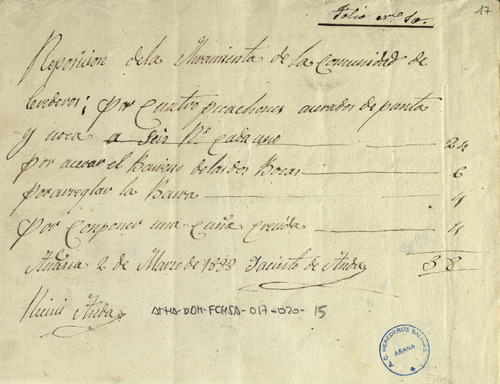 Folio nro 10.
17
Reposicion de la Herramienta de la Comunidad de
Erederos; por cuatro picachones acerados de punta
y voca a seis Rs cada uno 24
por acerar el Barreno de las dos Bocas 6
por arreglar la Barra 4
por componer una cuña crecida 4
Añana 2 de Marzo de 1888 Jacinto de Anda 38
Anda
ATHA-DOH-FCHSA-017-020-15
A.C. HEREDEROS SALINAS
AÑANA